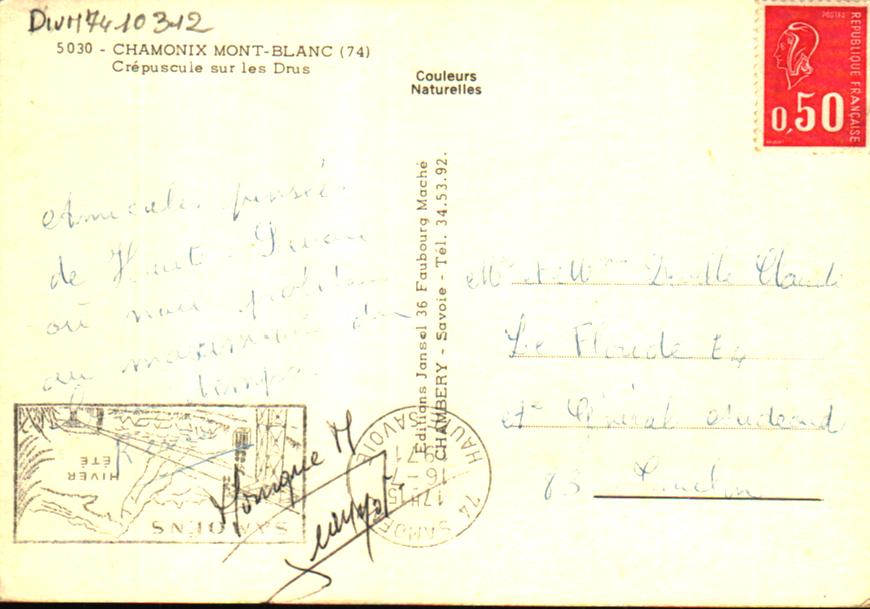 DIVH7410312
5030 - CHAMONIX MONT-BLANC (74)
Crépuscule sur les Drus
Couleurs
Naturelles
POSTES
REPUBLIQUE FRANÇAISE
0,50
Editions Jansol 36 Faubourg Maché
CHAMBERY - Savoie - Tél. 34.53.92.
Amicales pensées
de Haute
où nous
au maximum du
temps.
Monique M
SAMOENS
HIVER
ÉTÉ
74 SAMOENS
17H15
16-7
1971
HAUTE SAVOIE
Mr et Mme Claude
Le E4
Général Audeoud
83 Toulon